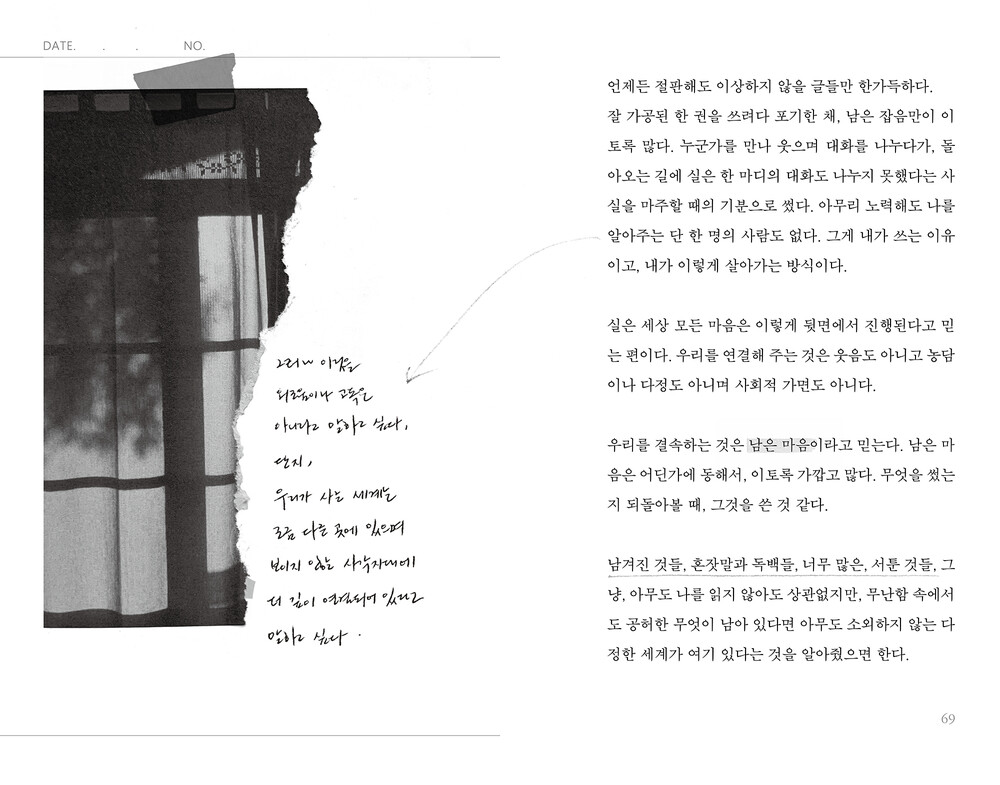 DATE. . . NO.
그러나 이것을
외로움이나 고독은
아니라고 말하고 싶다,
단지,
우리가 사는 세계는
조금 다른 곳에 있으며
보이지 않는 사각지대에
더 깊이 연결되어 있다고
말하고 싶다.
언제든 절판해도 이상하지 않을 글들만 한가득하다.
잘 가공된 한 권을 쓰려다 포기한 채, 남은 잡음만이 이
토록 많다. 누군가를 만나 웃으며 대화를 나누다가, 돌
아오는 길에 실은 한 마디의 대화도 나누지 못했다는 사
실을 마주할 때의 기분으로 썼다. 아무리 노력해도 나를
알아주는 단 한 명의 사람도 없다. 그게 내가 쓰는 이유
이고, 내가 이렇게 살아가는 방식이다.
실은 세상 모든 마음은 이렇게 뒷면에서 진행된다고 믿
는 편이다. 우리를 연결해 주는 것은 웃음도 아니고 농담
이나 다정도 아니며 사회적 가면도 아니다.
우리를 결속하는 것은 남은 마음이라고 믿는다. 남은 마
음은 어딘가에 동해서, 이토록 가깝고 많다. 무엇을 썼는
지 되돌아볼 때, 그것을 쓴 것 같다.
남겨진 것들, 혼잣말과 독백들, 너무 많은, 서툰 것들, 그
냥, 아무도 나를 읽지 않아도 상관없지만, 무난함 속에서
도 공허한 무엇이 남아 있다면 아무도 소외하지 않는 다
정한 세계가 여기 있다는 것을 알아줬으면 한다.
69